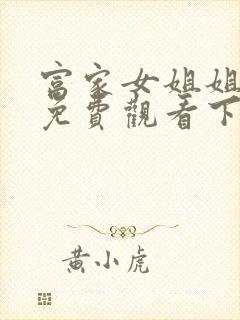 富家女姐姐
免費觀看下
黃小虎